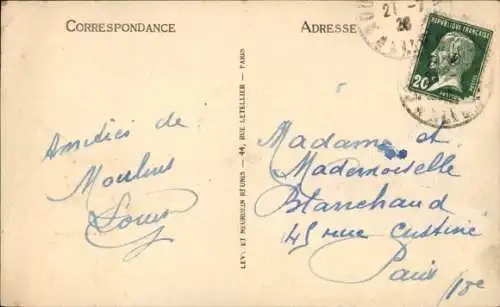 CORRESPONDANCE
ADRESSE
21 -
26
RÉPUBLIQUE FRANÇAISE
20
POSTES
LEVY ET NEURDEIN RÉUNIS - 44, RUE LETELLIER - PARIS
Amitiés de
Moulins
Louis
Madame et
Mademoiselle
Blanchaud
45 rue Custine
Paris 18e